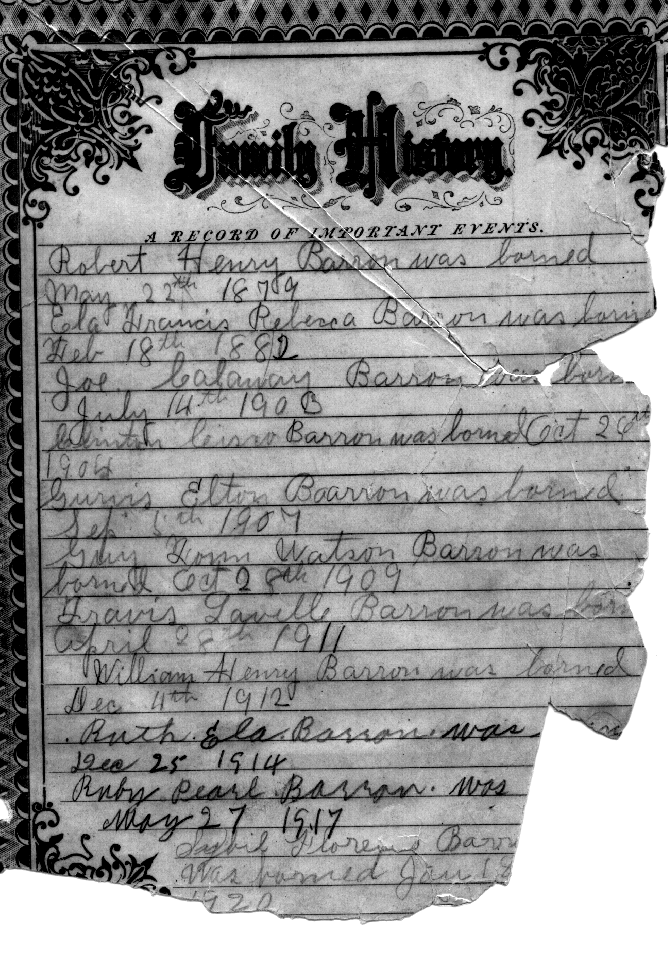 Family History.
A RECORD OF IMPORTANT EVENTS.
Robert Henry Barron was borned
May 22th 1879
Ela Francis Rebeca Barron was born
Feb 18th 1882
Joe Calaway Barron was born
July 14th 1903
Clinton Barron was borned Oct 26
1904
Gurvis Elton Baarron was borned
Sep 5th 1907
Guy Watson Barron was
borned Oct 28th 1909
Travis Lavelle Barron was born
April 28th 1911
William Henry Barron was borned
Dec 4th 1912
Ruth Ela Barron. was
Dec 25 1914
Ruby Pearl Barron. was
May 27 1917
Sybil Barro
Was borned Jan
1920